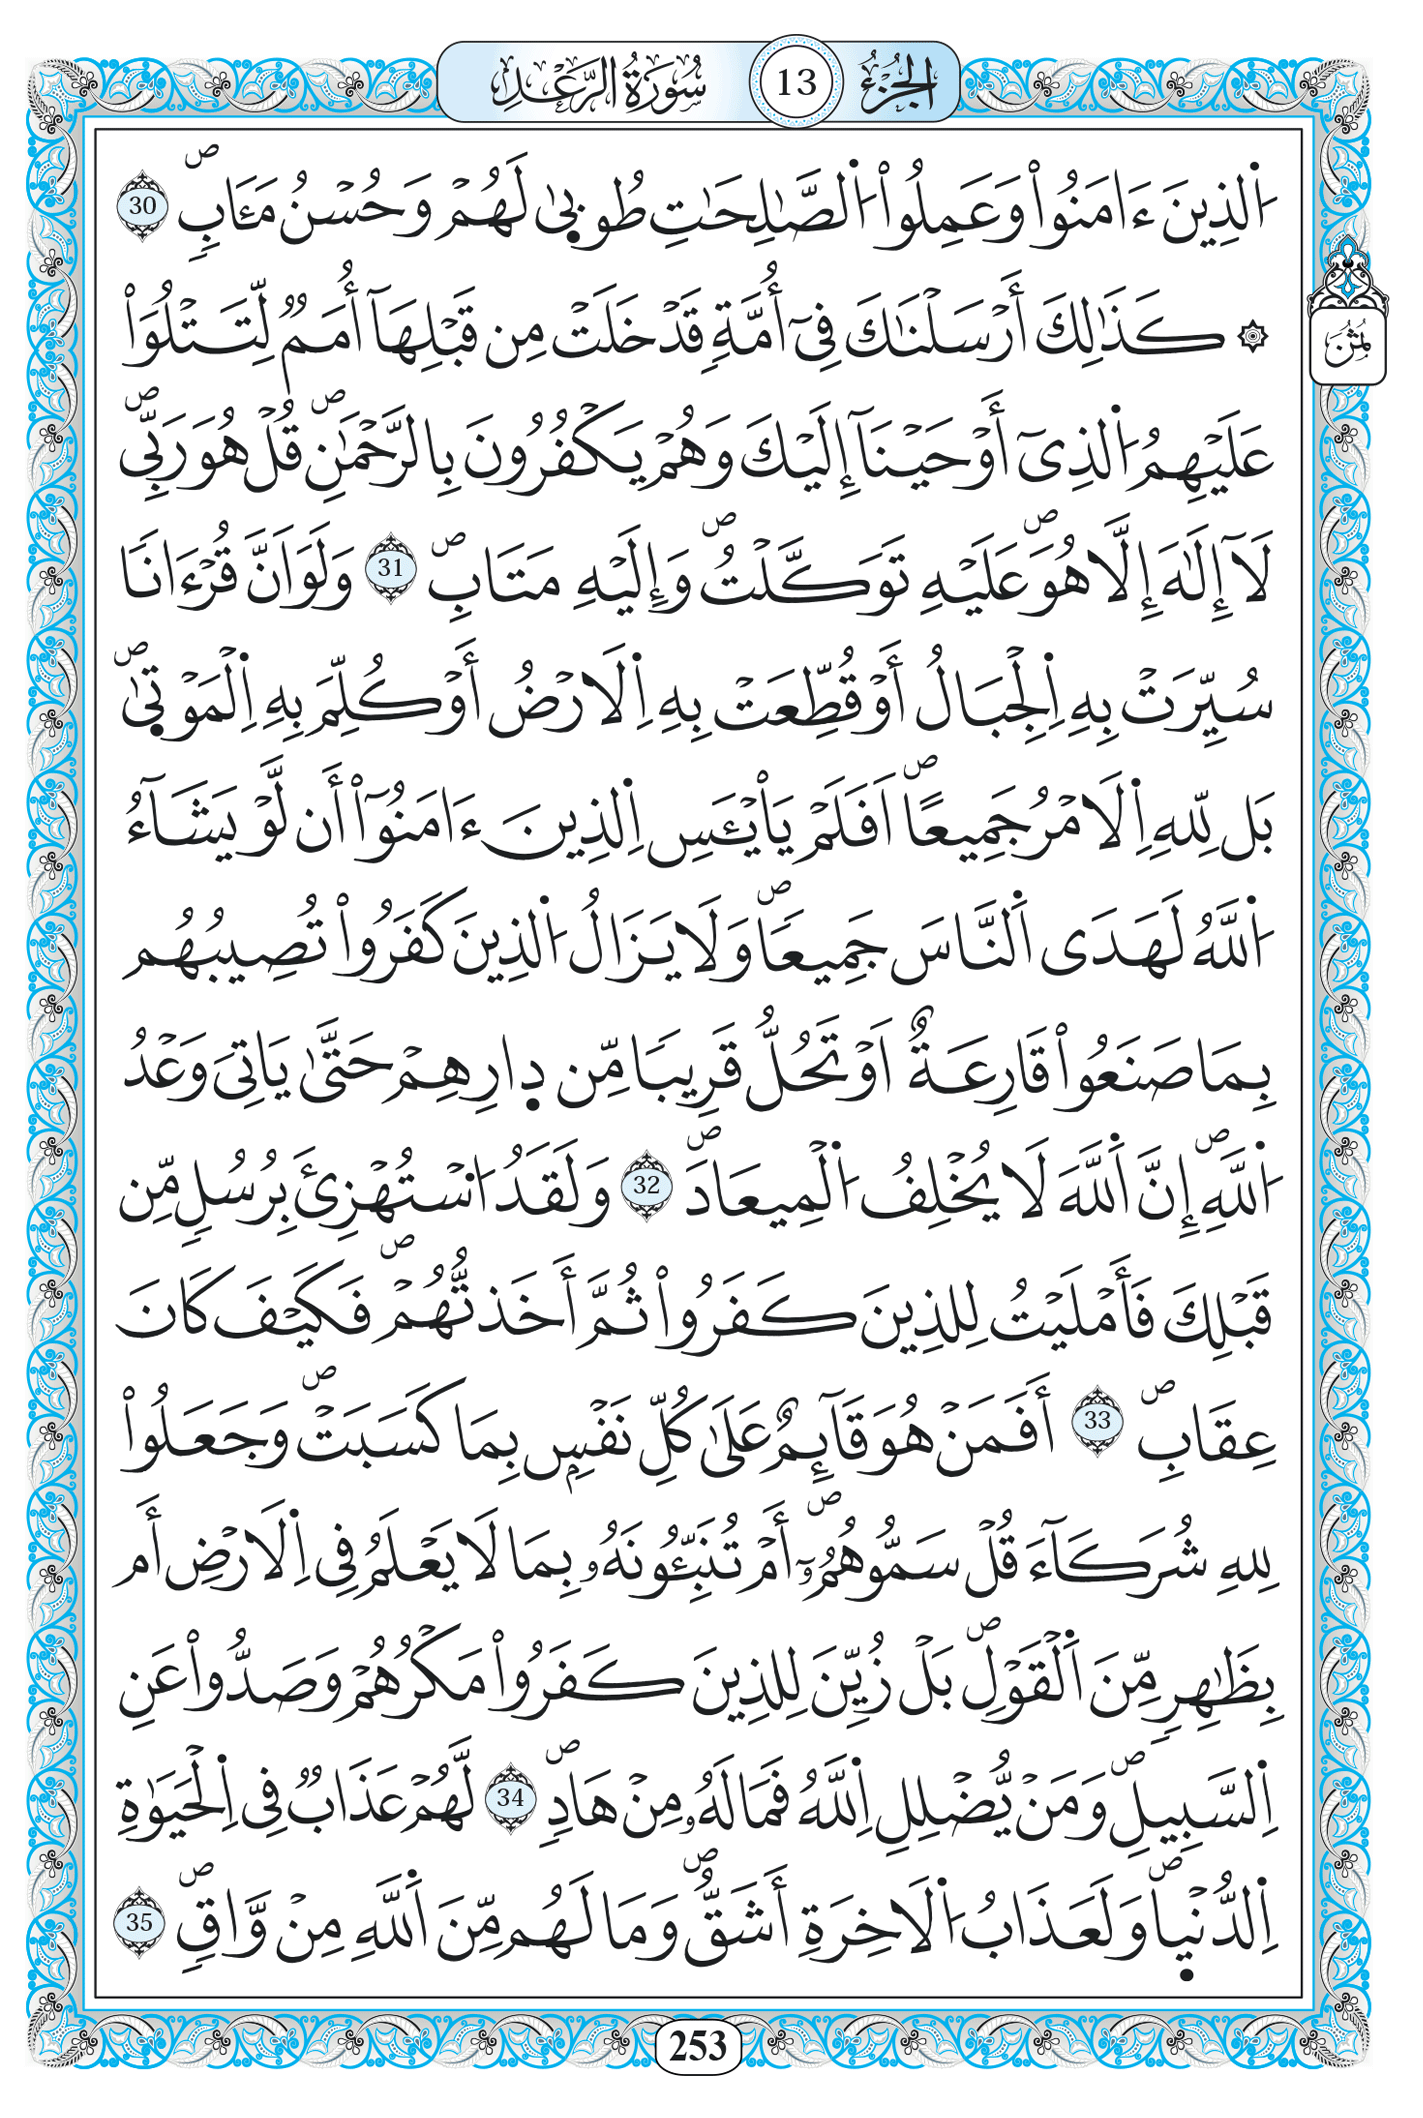 الجزء 13 سورة الرعد
اَ۬لذِينَ ءَامَنُواْ وَعَمِلُواْ اُ۬لصَّٰلِحَٰتِ طُوب۪ىٰ لَهُمْ وَحُسْنُ مَـَٔابٖۖ 30
ثمن
۞ كَذَٰلِكَ أَرْسَلْنَٰكَ فِےٓ أُمَّةٖ قَدْ خَلَتْ مِن قَبْلِهَآ أُمَمٞ لِّتَتْلُوَاْ
عَلَيْهِمُ اُ۬لذِےٓ أَوْحَيْنَآ إِلَيْكَ وَهُمْ يَكْفُرُونَ بِالرَّحْمَٰنِۖ قُلْ هُوَ رَبِّے
لَآ إِلَٰهَ إِلَّا هُوَۖ عَلَيْهِ تَوَكَّلْتُۖ وَإِلَيْهِ مَتَابِۖ 31 وَلَوَ اَنَّ قُرْءَاناٗ
سُيِّرَتْ بِهِ اِ۬لْجِبَالُ أَوْ قُطِّعَتْ بِهِ اِ۬لَارْضُ أَوْ كُلِّمَ بِهِ اِ۬لْمَوْت۪ىٰۖ
بَل لِّلهِ اِ۬لَامْرُ جَمِيعاًۖ اَفَلَمْ يَاْيْـَٔسِ اِ۬لذِينَ ءَامَنُوٓاْ أَن لَّوْ يَشَآءُ
اُ۬للَّهُ لَهَدَى اَ۬لنَّاسَ جَمِيعاٗۖ وَلَا يَزَالُ اُ۬لذِينَ كَفَرُواْ تُصِيبُهُم
بِمَا صَنَعُواْ قَارِعَةٌ اَوْ تَحُلُّ قَرِيباٗ مِّن د۪ارِهِمْ حَتَّىٰ يَاتِيَ وَعْدُ
اُ۬للَّهِۖ إِنَّ اَ۬للَّهَ لَا يُخْلِفُ اُ۬لْمِيعَادَۖ 32 وَلَقَدُ اُ۟سْتُهْزِئَ بِرُسُلٖ مِّن
قَبْلِكَ فَأَمْلَيْتُ لِلذِينَ كَفَرُواْ ثُمَّ أَخَذتُّهُمْۖ فَكَيْفَ كَانَ
عِقَابِۖ 33 أَفَمَنْ هُوَ قَآئِمٌ عَلَىٰ كُلِّ نَفْسِۢ بِمَا كَسَبَتْۖ وَجَعَلُواْ
لِلهِ شُرَكَآءَ قُلْ سَمُّوهُمُۥٓۖ أَمْ تُنَبِّـُٔونَهُۥ بِمَا لَا يَعْلَمُ فِے اِ۬لَارْضِ أَم
بِظَٰهِرٖ مِّنَ اَ۬لْقَوْلِۖ بَلْ زُيِّنَ لِلذِينَ كَفَرُواْ مَكْرُهُمْ وَصَدُّواْ عَنِ
اِ۬لسَّبِيلِۖ وَمَنْ يُّضْلِلِ اِ۬للَّهُ فَمَا لَهُۥ مِنْ هَادٖۖ 34 لَّهُمْ عَذَابٞ فِے اِ۬لْحَيَوٰةِ
اِ۬لدُّنْي۪اۖ وَلَعَذَابُ اُ۬لَاخِرَةِ أَشَقُّۖ وَمَا لَهُم مِّنَ اَ۬للَّهِ مِنْ وَّاقٖۖ 35
253